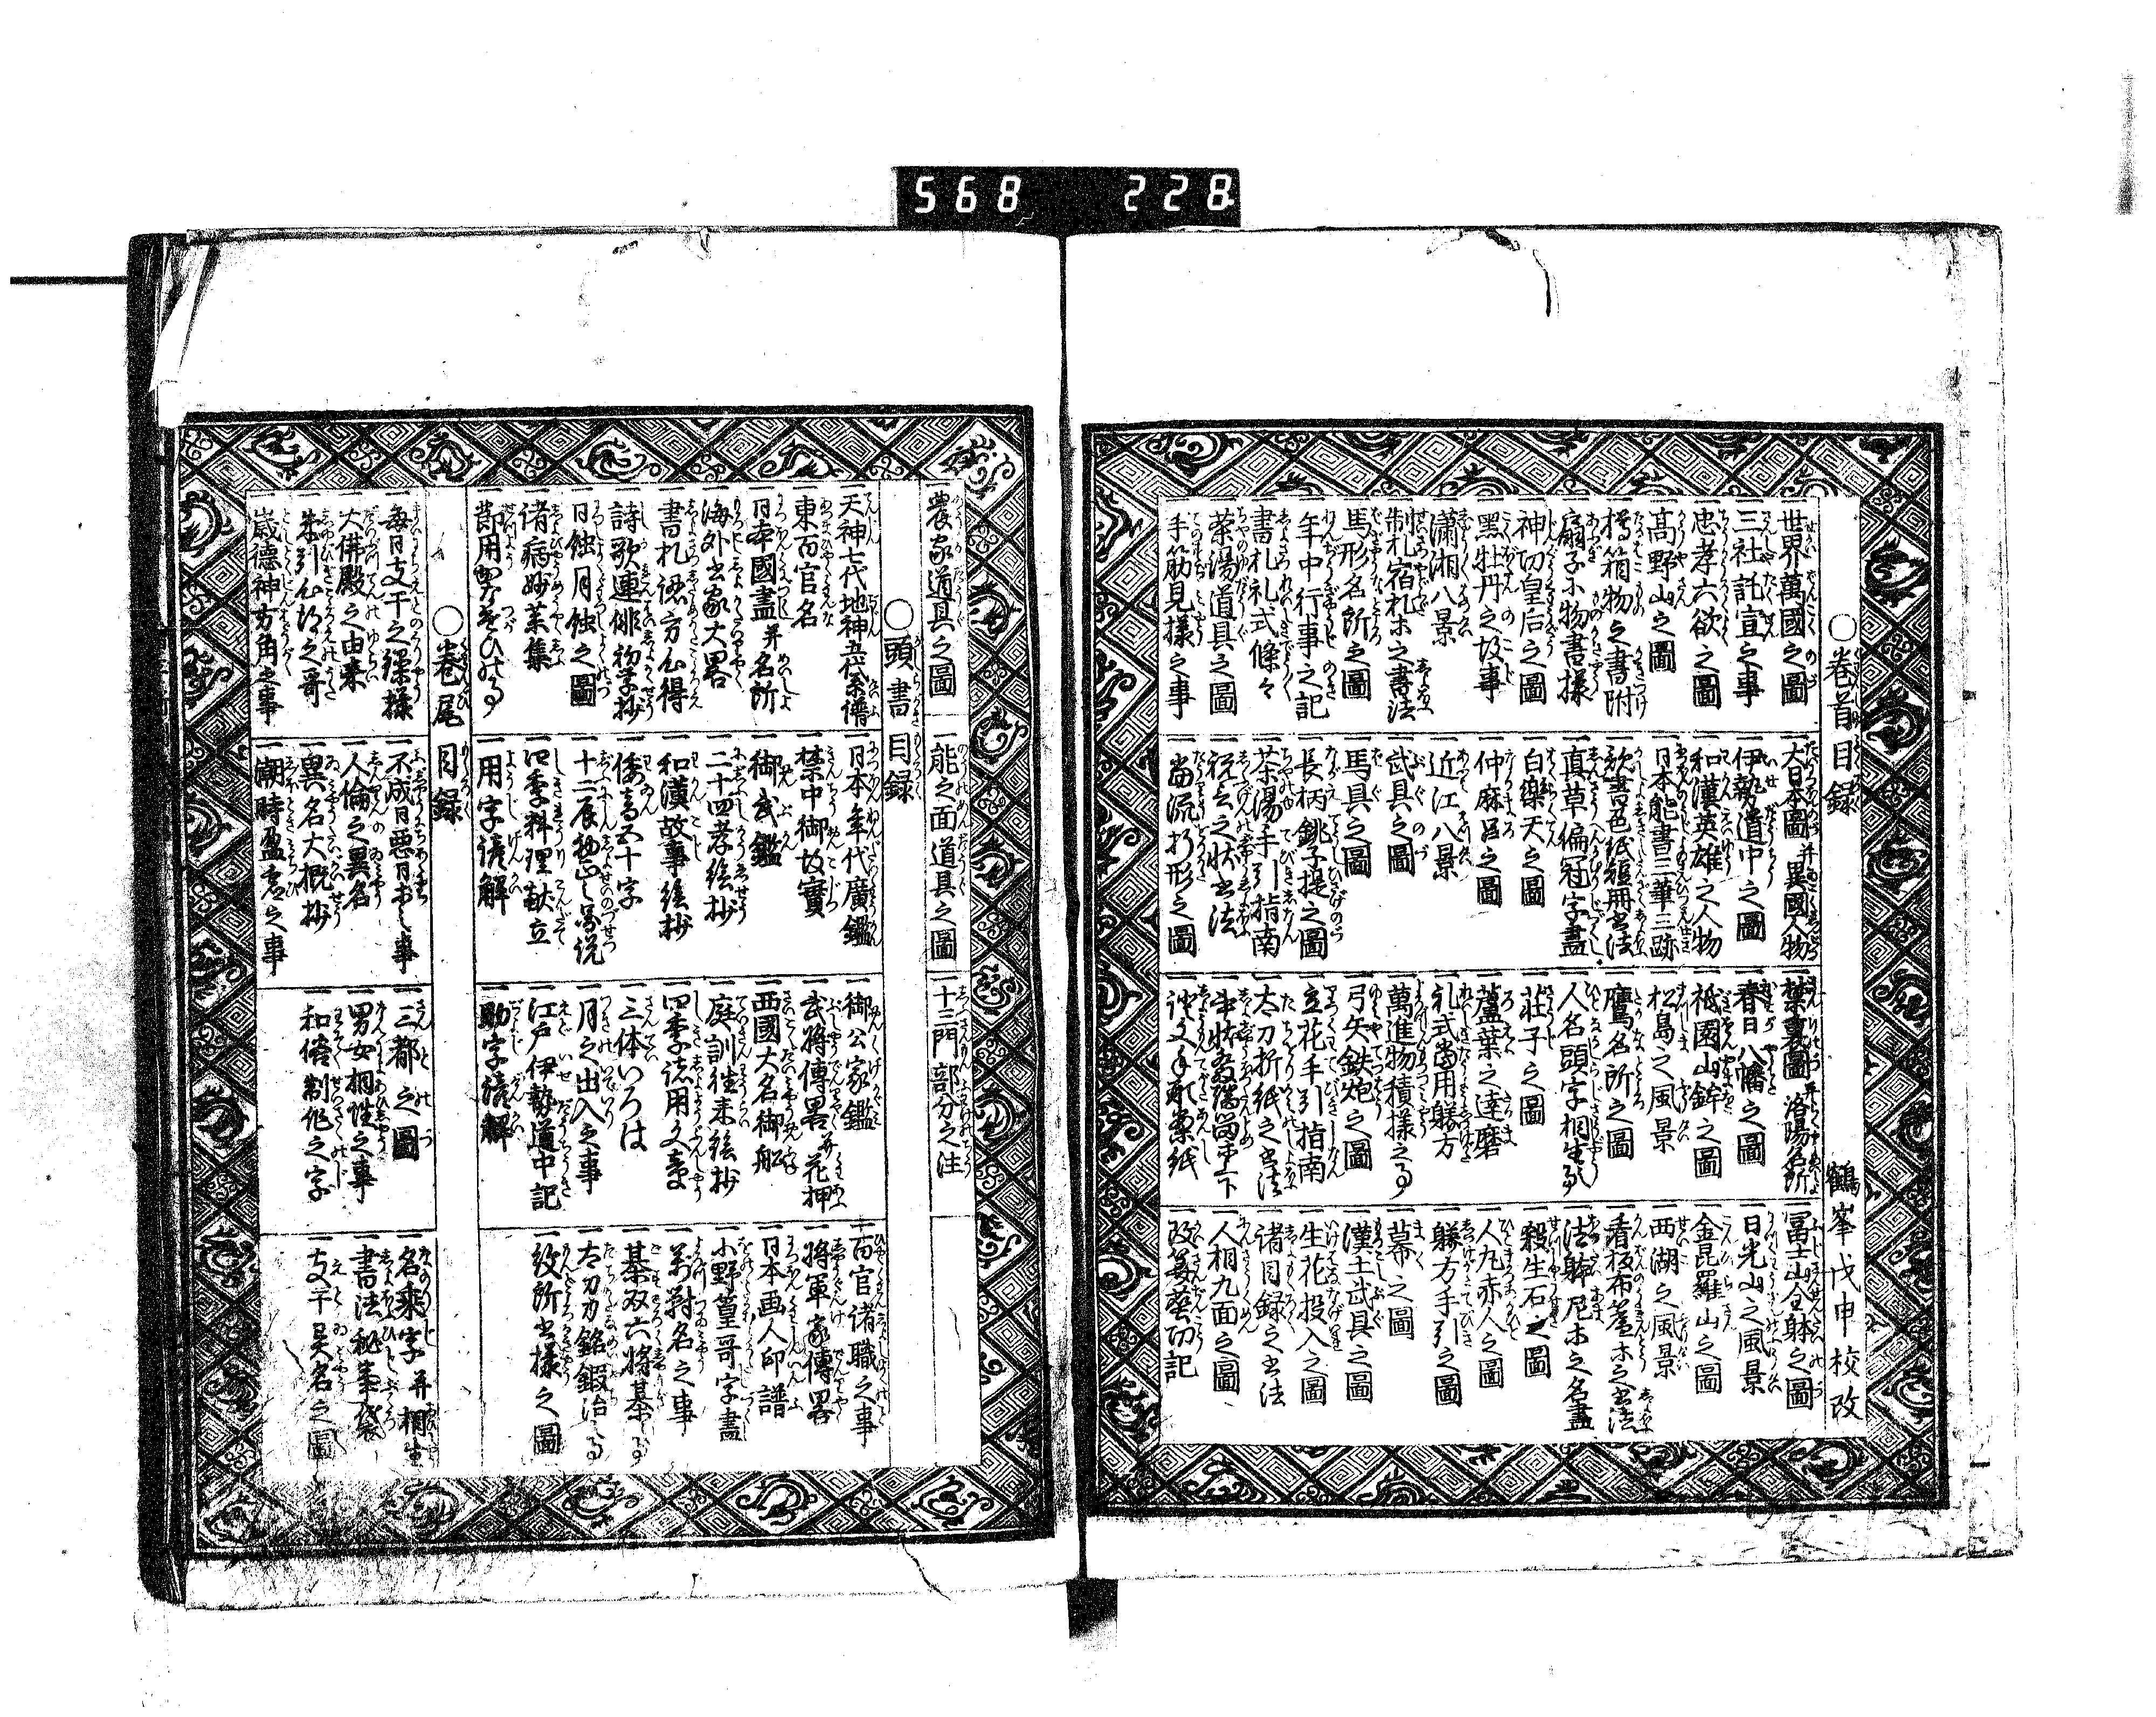 568 228
○巻首目録
鶴峯戊申校改
一世界萬國之圖
一三社託宣之事
一忠孝六欲之圖
一髙野山之圖
一樽箱物之書附
一扇子小物書様
一神功皇后之圖
一黑牡丹之故事
一瀟湘八景
一制札宿札等之書法
一馬形名所之圖
一年中行事之記
一書札礼式條々
一茶湯道具之圖
一手筋見様之事
一大日本圖并異國人物
一伊勢道中之圖
一和漢英雄之人物
一日本能書三筆三跡
一歌書色紙短冊書法
一真草偏冠字盡
一白樂天之圖
一仲麻呂之圖
一近江八景
一武具之圖
一馬具之圖
一長柄銚子提之圖
一茶湯手引指南
一祝言之状書法
一當流折形之圖
一禁裏圖并洛陽名所
一春日八幡之圖
一祇園山鉾之圖
一松島之風景
一鷹名所之圖
一人名頭字相生事
一莊子之圖
一蘆葉之達磨
一礼式當用躾方
一萬進物積様之事
一弓矢鉄炮之圖
一立花手引指南
一太刀折紙之書法
一證文手形案紙
一冨士山全躰之圖
一日光山之風景
一金毘羅山之圖
一西湖之風景
一看板布簾等之書法
一法躰尼等之名盡
一殺生石之圖
一人丸赤人之圖
一躾方手引之圖
一幕之圖
一漢土武具之圖
一生花投入之圖
一諸目録之書法
一人相九面之圖
一改筭葉功記
一農家道具之圖
一能之面道具之圖
一十三門部分之注
○頭書目録
一天神七代地神五代系譜
一東百官名
一日本國盡并名所
一海外書家大畧
一書札認方心得
一詩歌連俳初学抄
一日蝕月蝕之圖
一諸病妙薬集
一節用かなづかひの事
一日本年代廣鑑
一禁中御故實
一御武鑑
一二十四孝絵抄
一和漢故事絵抄
一倭音五十字
一十二辰極之畧説
一四季料理献立
一用字譯解
一御公家鑑
一武将傳畧并花押
一西國大名御船
一庭訓往来絵抄
一四季送用文章
一三体いろは
一月之出入之事
一江戸伊勢道中記
一助字譯解
一百官諸職之事
一将軍家傳畧
一日本画人印譜
一小野篁哥字盡
一萬對名之事
一碁双六将棊之事
一太刀刀銘鍛冶之事
一紋所書様之圖
○巻尾目録
一毎日支干之繰様
一大佛殿之由来
一朱引心得之哥
一歳德神方角之事
一不成日悪日等之事
一人倫之異名
一異名大概抄
一潮時盈虚之事
一三都之圖
一男女相性之事
一和俗制作之字
一名乘字并相生
一書法秘事袋
一支干異名之圖